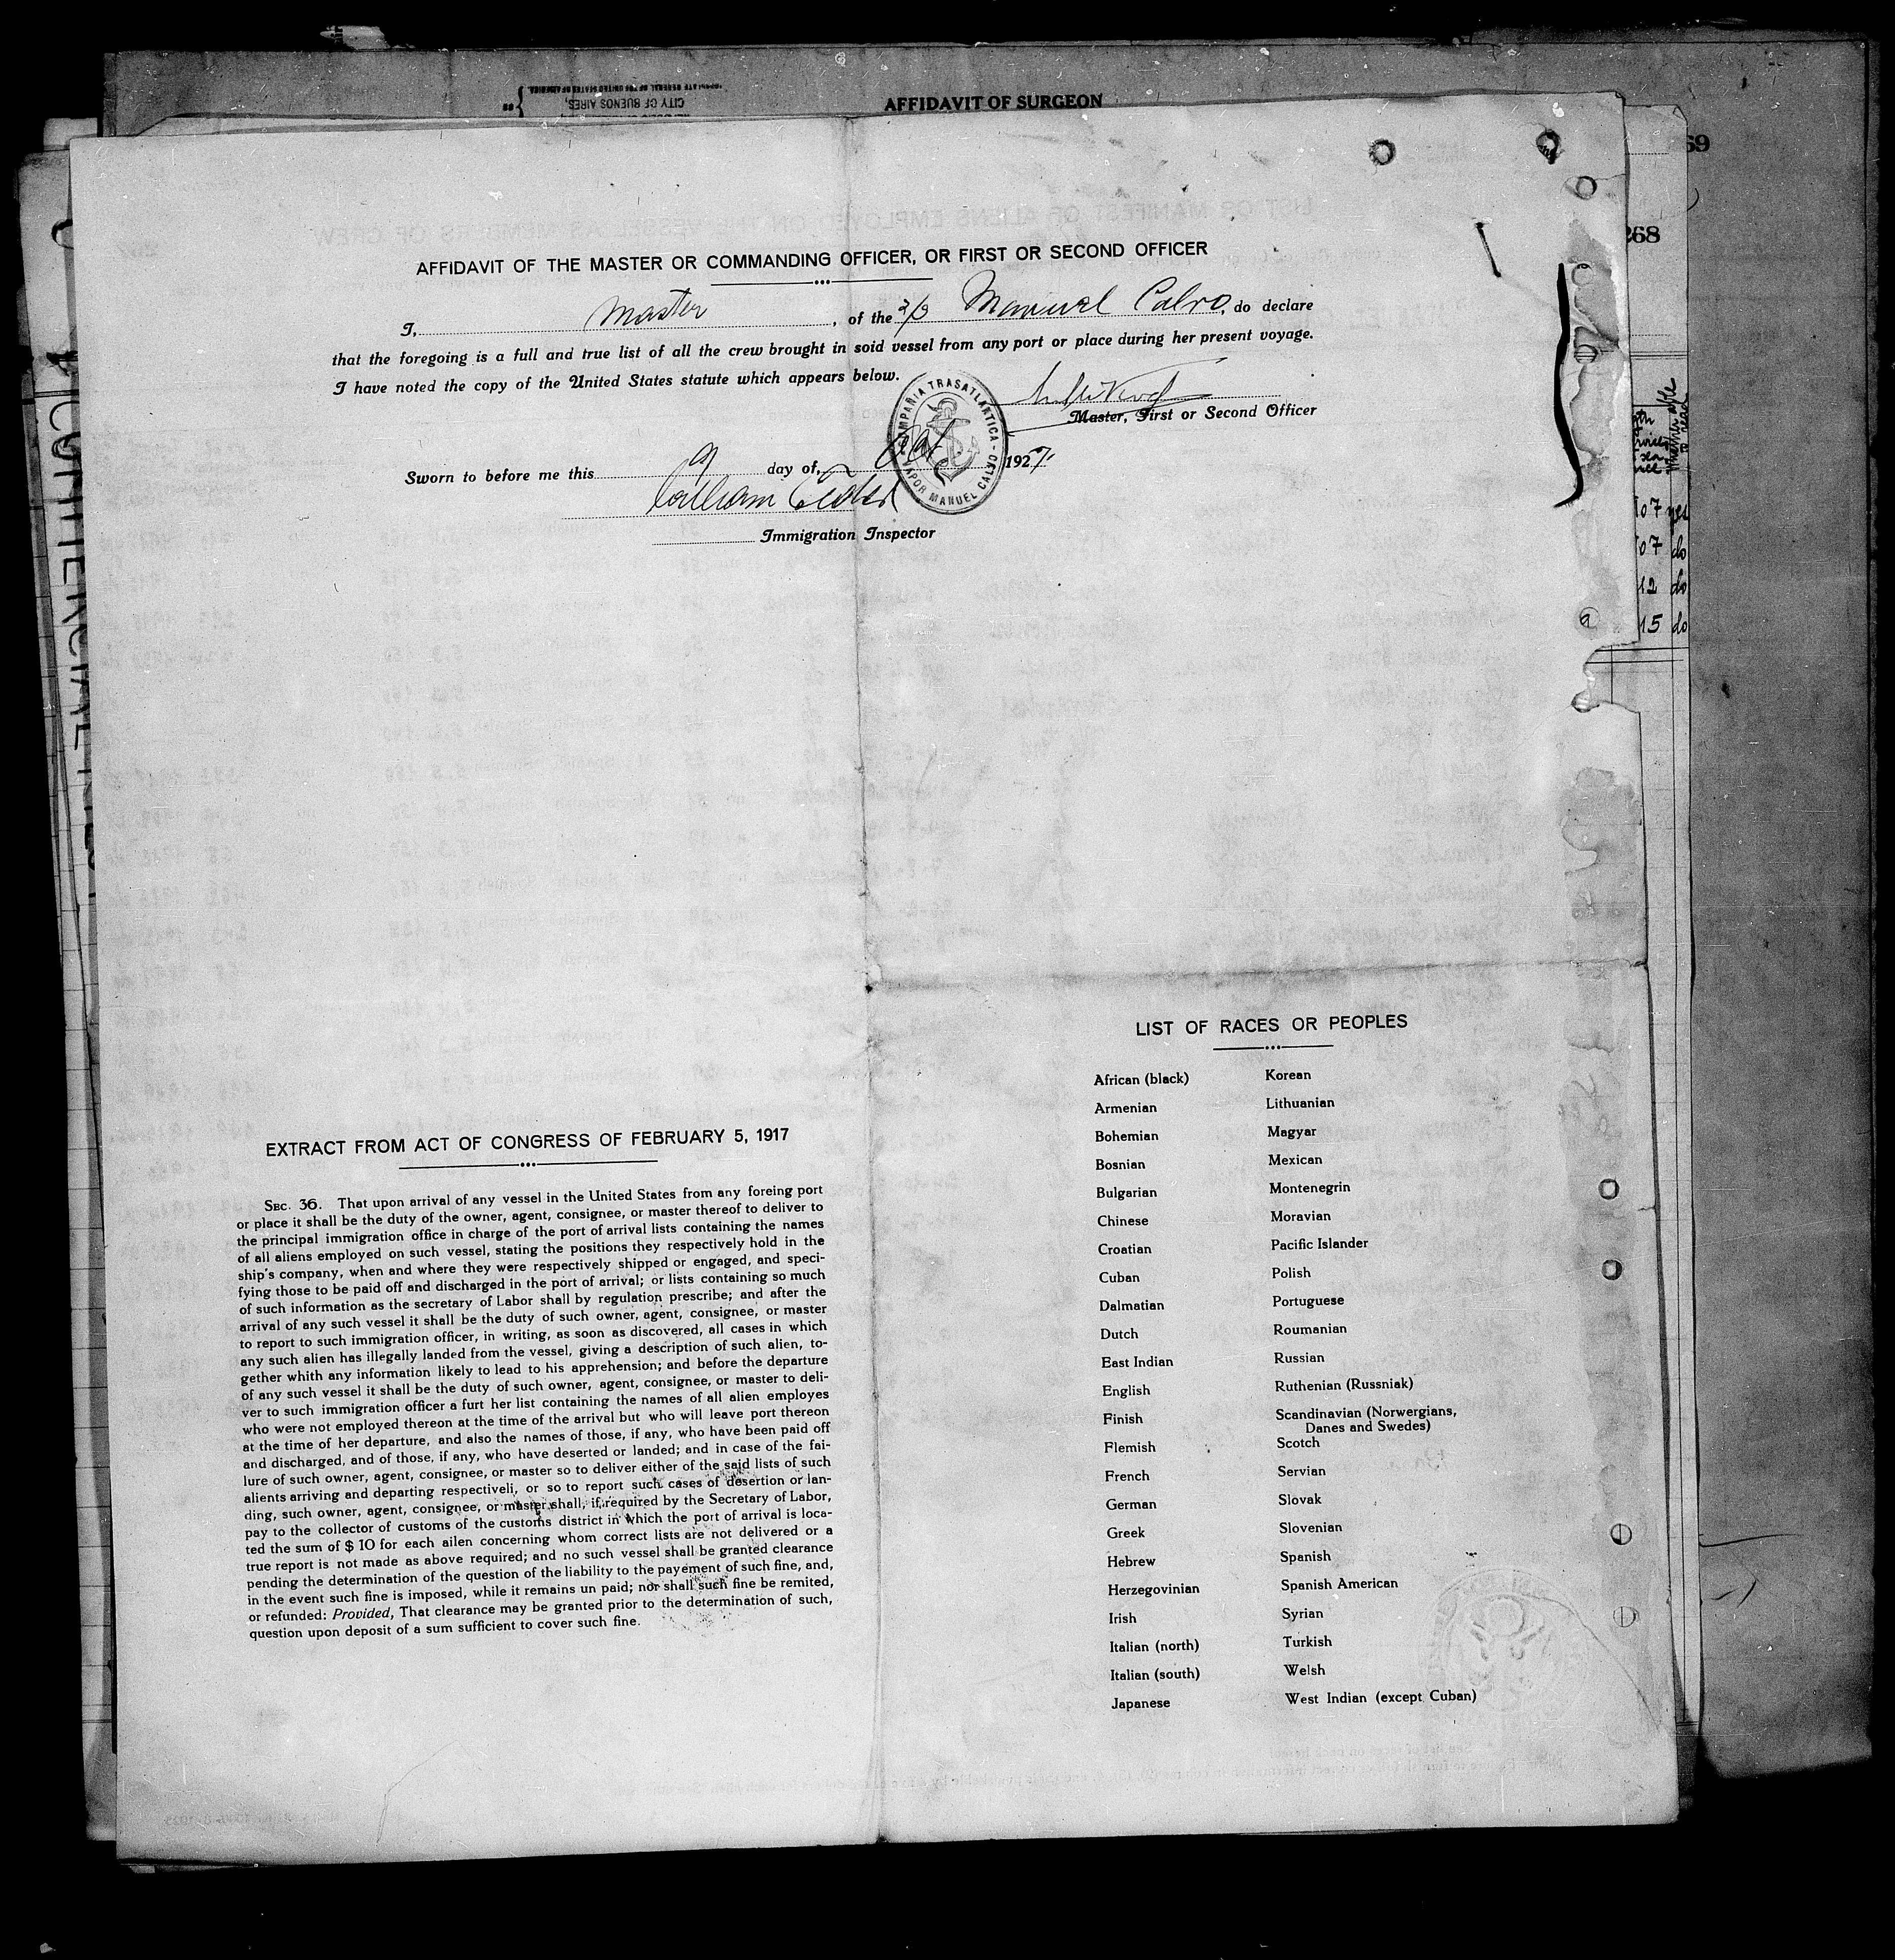 CITY OF BUENOS AIRES,
AFFIDAVIT OF SURGEON
69
268
AFFIDAVIT OF THE MASTER OR COMMANDING OFFICER, OR FIRST OR SECOND OFFICER
I, Master, of the S/S Manuel Calvo, do declare
that the foregoing is a full and true list of all the crew brought in soid vessel from any port or place during her present voyage.
I have noted the copy of the United States statute which appears below.
COMPAÑIA TRASATLANTICA - VAPOR MANUEL CALVO -
Master, First or Second Officer
Sworn to before me this 9 day of, Oct 1927.
William
Immigration Inspector
Whether able to read
07 yes
07 do
12 do
15 do
LIST OF RACES OR PEOPLES
African (black) Korean
Armenian Lithuanian
Bohemian Magyar
Bosnian Mexican
Bulgarian Montenegrin
Chinese Moravian
Croatian Pacific Islander
Cuban Polish
Dalmatian Portuguese
Dutch Roumanian
East Indian Russian
English Ruthenian (Russniak)
Finish Scandinavian (Norwergians,
Danes and Swedes)
Flemish Scotch
French Servian
German Slovak
Greek Slovenian
Hebrew Spanish
Herzegovinian Spanish American
Irish Syrian
Italian (north) Turkish
Italian (south) Welsh
Japanese West Indian (except Cuban)
EXTRACT FROM ACT OF CONGRESS OF FEBRUARY 5, 1917
SEC. 36. That upon arrival of any vessel in the United States from any foreing port
or place it shall be the duty of the owner, agent, consignee, or master thereof to deliver to
the principal immigration office in charge of the port of arrival lists containing the names
of all aliens employed on such vessel, stating the positions they respectively hold in the
ship's company, when and where they were respectively shipped or engaged, and speci-
fying those to be paid off and discharged in the port of arrival; or lists containing so much
of such information as the secretary of Labor shall by regulation prescribe; and after the
arrival of any such vessel it shall be the duty of such owner, agent, consignee, or master
to report to such immigration officer, in writing, as soon as discovered, all cases in which
any such alien has illegally landed from the vessel, giving a description of such alien, to-
gether whith any information likely to lead to his apprehension; and before the departure
of any such vessel it shall be the duty of such owner, agent, consignee, or master to deli-
ver to such immigration officer a furt her list containing the names of all alien employes
who were not employed thereon at the time of the arrival but who will leave port thereon
at the time of her departure, and also the names of those, if any, who have been paid off
and discharged, and of those, if any, who have deserted or landed; and in case of the fai-
lure of such owner, agent, consignee, or master so to deliver either of the said lists of such
alients arriving and departing respectiveli, or so to report such cases of desertion or lan-
ding, such owner, agent, consignee, or master shall, if required by the Secretary of Labor,
pay to the collector of customs of the customs district in which the port of arrival is loca-
ted the sum of $ 10 for each ailen concerning whom correct lists are not delivered or a
true report is not made as above required; and no such vessel shall be granted clearance
pending the determination of the question of the liability to the payement of such fine, and,
in the event such fine is imposed, while it remains un paid; nor shall such fine be remited,
or refunded: Provided, That clearance may be granted prior to the determination of such,
question upon deposit of a sum sufficient to cover such fine.